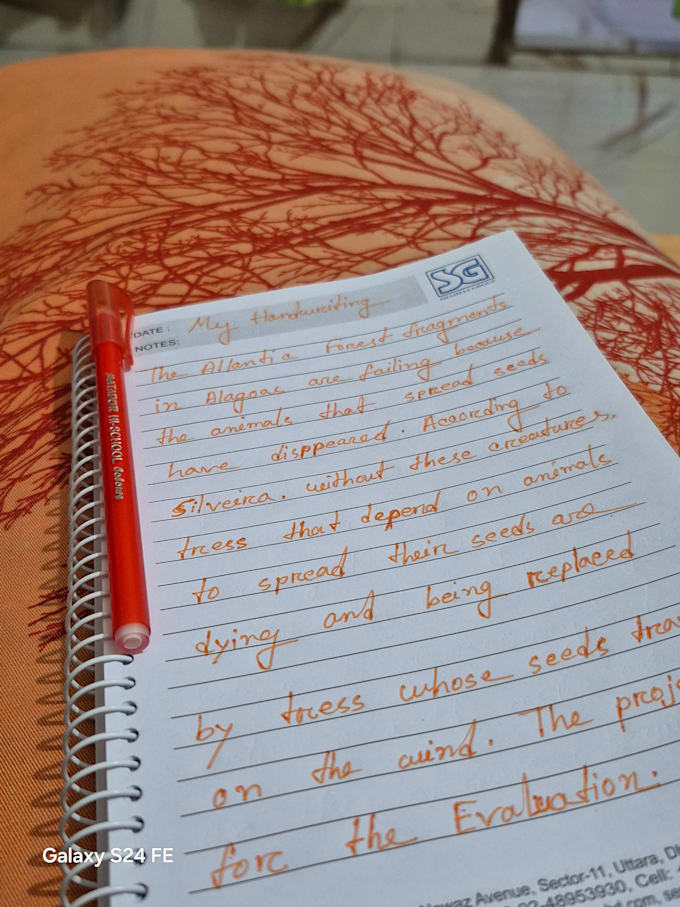 SG
DATE : My Handwriting
NOTES:
The Atlantia Forest fragments
in Alagoas are failing because
the animals that spread seeds
have disppeared. According to
Silveira, without these creatures,
tress that depend on animals
to spread their seeds are
dying and being replaced
by tress whose seeds trav
on the wind. The proj
for the Evaluation.
MATADOR HI-SCHOOL Colours
waz Avenue, Sector-11, Uttara, Dh
02-48953930, Cell:
Galaxy S24 FE